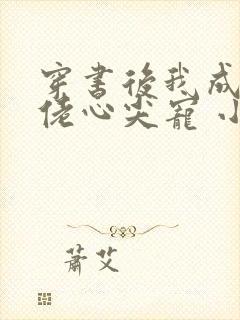 穿書後我成
佬心尖寵 小
蕭艾